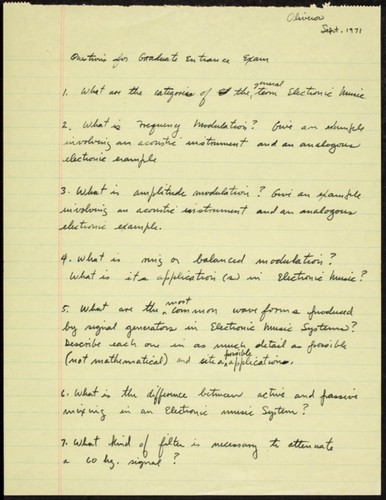 Oliveros
Sept. 1971
Questions for Graduate Entrance Exam
1. What are the categories of the general term Electronic Music
2. What is Frequency Modulation? Give an example
involving an acoustic instrument and an analogous
electronic example
3. What is amplitude modulation? Give an example
involving an acoustic instrument and an analogous
electronic example.
4. What is ring or balanced modulation?
What is its application(s) in Electronic Music?
5. What are the most common wave forms produced
by signal generators in Electronic Music Systems?
Describe each one in as much detail as possible
(not mathematical) and cite possible applications.
6. What is the difference between active and passive
mixing in an Electronic music System?
7. What kind of filter is necessary to attenuate
a 60 hz. signal?